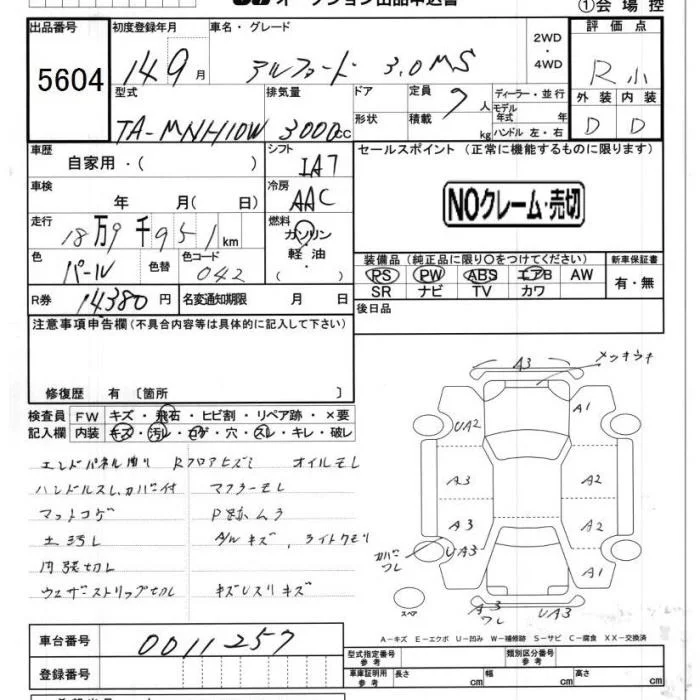 オークション出品申込書
①会場控
出品番号 5604
初度登録年月 14 9 月
車名・グレード アルファード 3.0 MS
2WD・4WD
評価点 R 小
型式 TA-MNH10W
排気量 3000cc
ドア 形状
定員 7 人 積載 kg
ディーラー・並行
モデル年式 年
ハンドル 左・右
外装 D 内装 D
車歴 自家用・( )
シフト IAT
セールスポイント (正常に機能するものに限ります)
NOクレーム・売切
車検 年 月( 日)
冷房 AAC
走行 18万9千951km
燃料 ガソリン・軽油・( )
色 パール 色替 色コード 042
装備品 (純正品に限り〇をつけてください)
PS PW ABS エアB AW
SR ナビ TV カワ
新車保証書 有・無
R券 14380円 名変通知期限 月 日
後日品
注意事項申告欄 (不具合内容等は具体的に記入して下さい)
修復歴 有 〔箇所 〕
検査員記入欄
FW キズ・飛石・ヒビ割・リペア跡・×要
内装 キズ・汚レ・コゲ・穴・スレ・キレ・破レ
エンドパネル曲り Rフロアヒズミ オイルモレ
ハンドルスレ、カバー付 マフラーモレ
マットコゲ P跡ムラ
土汚レ アルミキズ、ライトクモリ
内張切レ
ウェザーストリップ切レ キズUスリキズ
A3 メッキウキ
A1
UA2
A3 A2
A3 A2
UA3 A1
カバーワレ
スペア
A3 ワレ UA3
A－キズ E－エクボ U－凹み W－補修跡 S－サビ C－腐食 XX－交換済
車台番号 0011257
登録番号
型式指定番号 参考 類別区分番号 参考
車庫証明用 参考 長さ cm 幅 cm 高さ cm